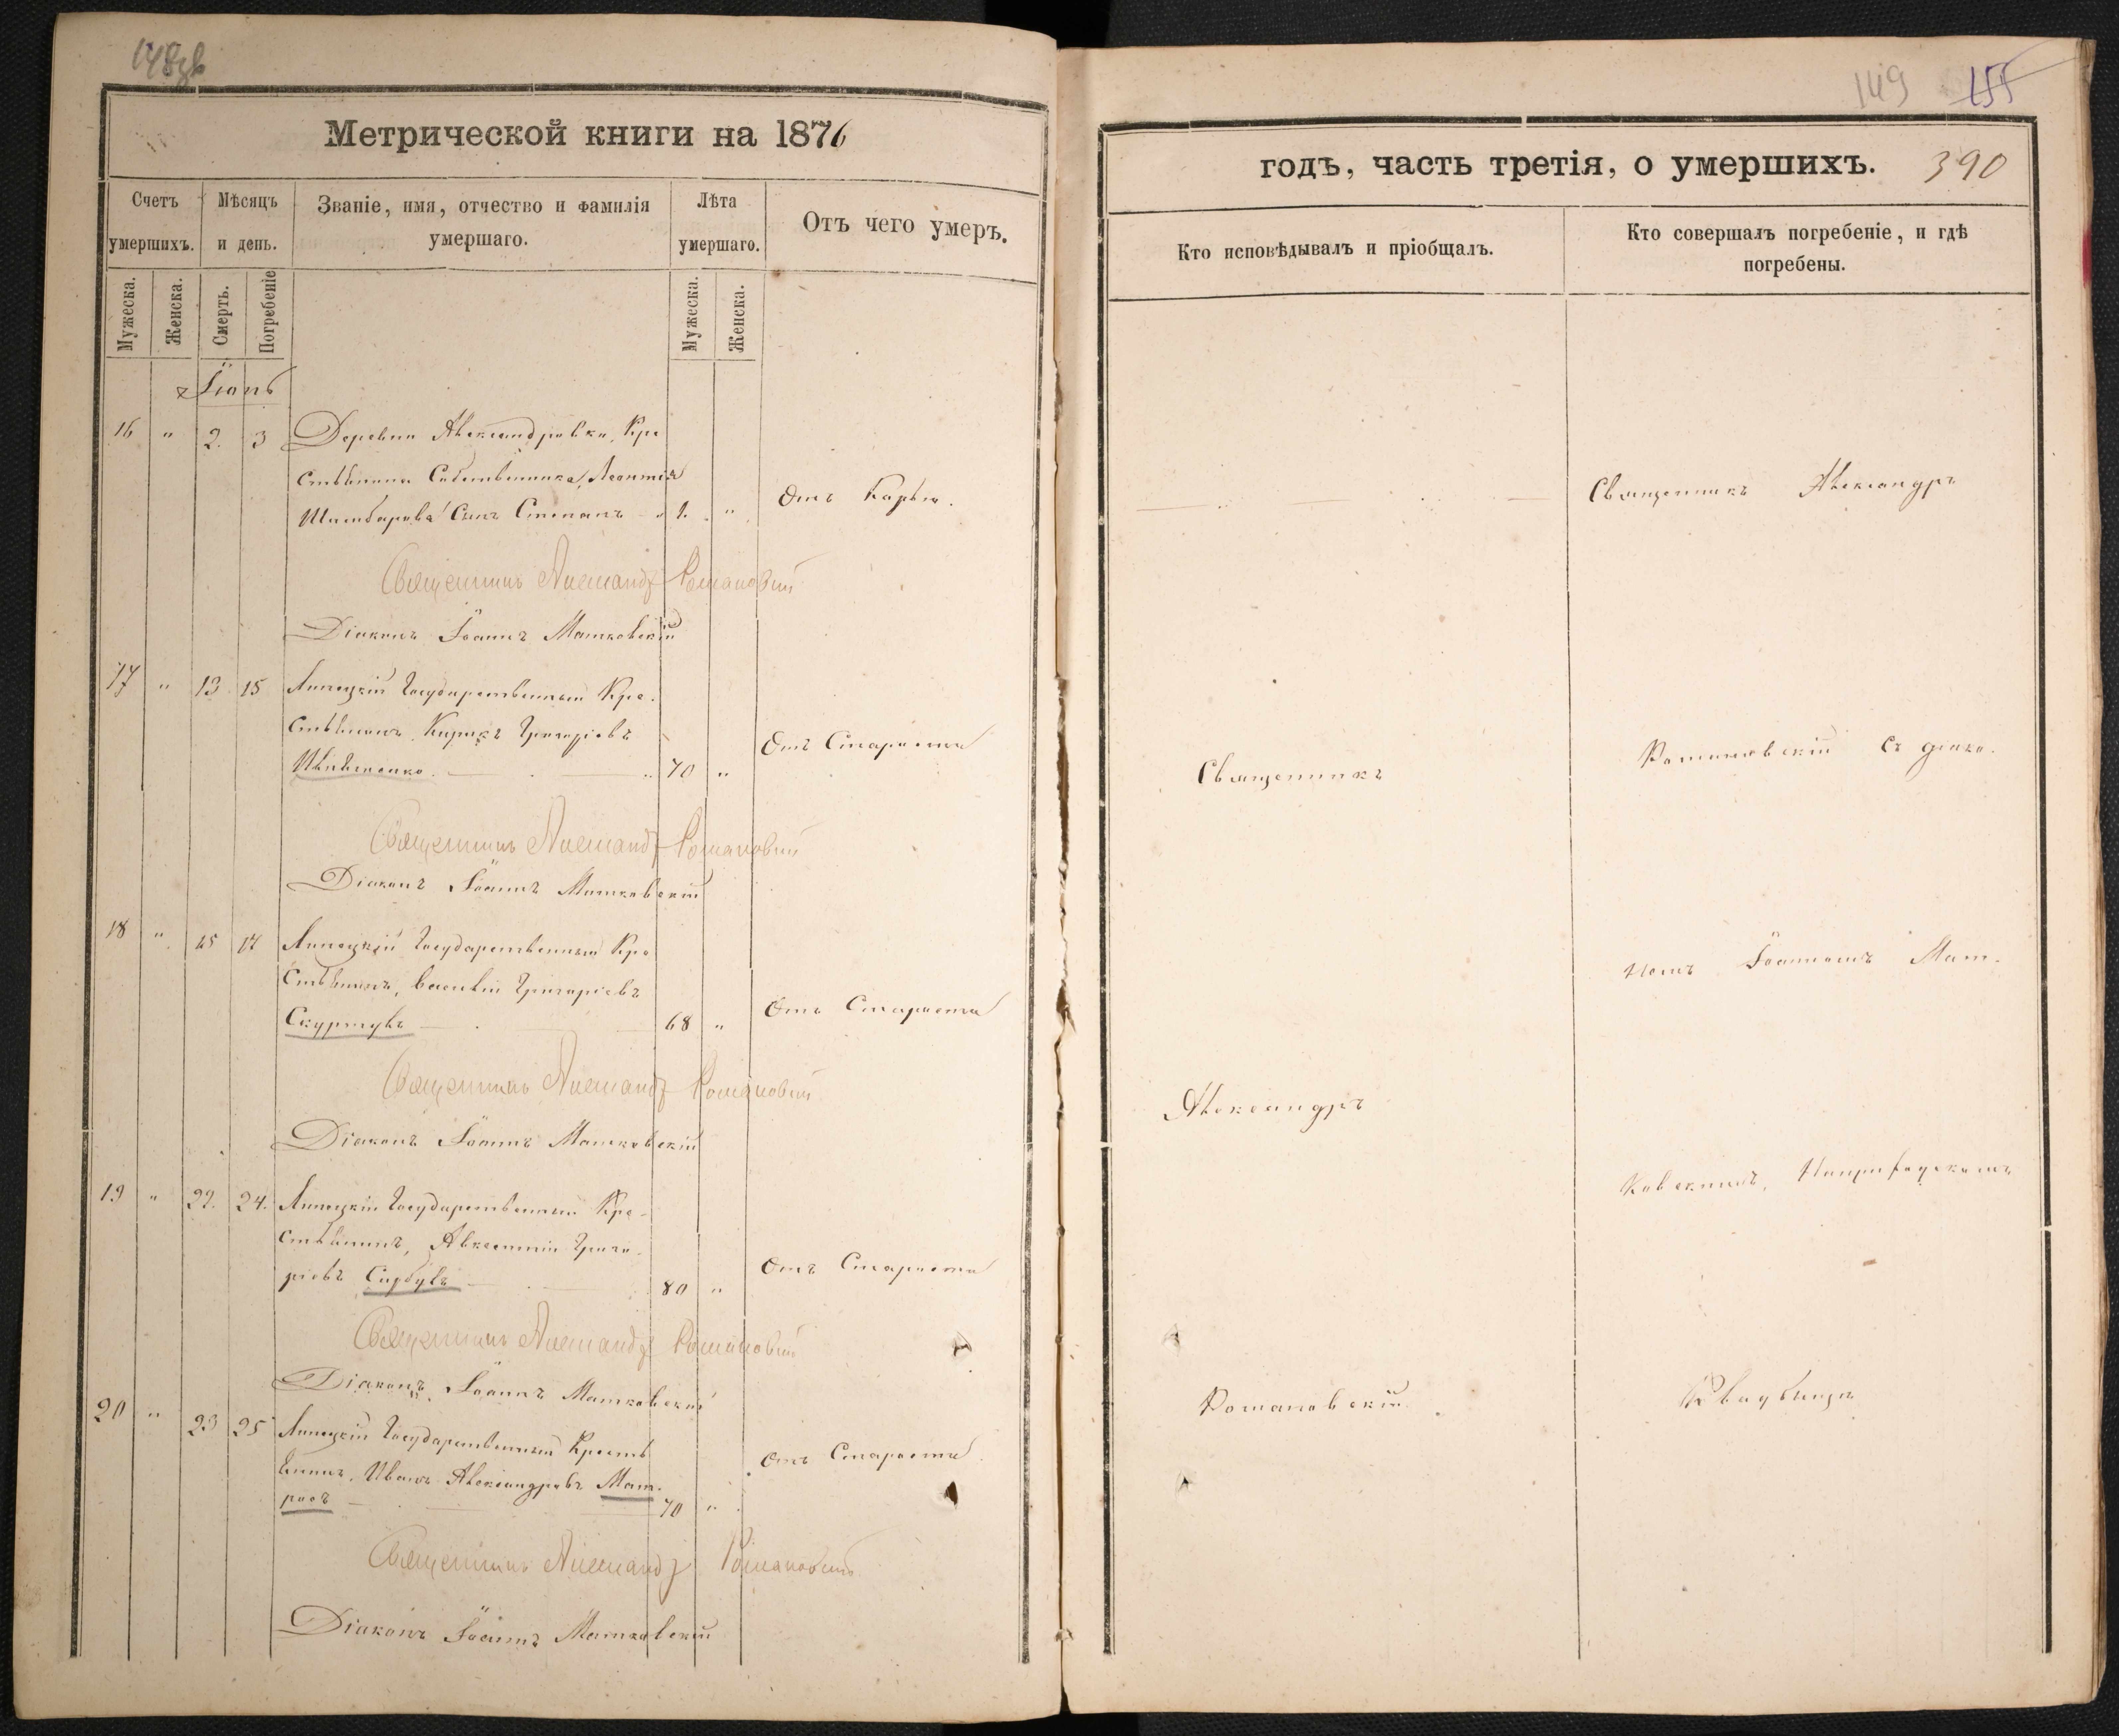 149 155
Метрической книги на 1876
годъ, часть третія, о умершихъ. 390
Счетъ умершихъ.
Мѣсяцъ и день.
Званіе, имя, отчество и фамилія умершаго.
Лѣта умершаго.
Отъ чего умеръ.
Кто исповѣдывалъ и пріобщалъ.
Кто совершалъ погребеніе, и гдѣ погребены.
Мужеска. Женска. Смерть. Погребеніе Мужеска. Женска.
Іюнь
16 " 2. 3 Деревни Александровки, Кре
стьянина Собственника, Леонтія
Сынъ Степанъ 1. " Отъ Корьи.
Священникъ Александръ
Священникъ Александръ Романовскій
Діаконъ Іоаннъ Матковскій
17 " 13 15 Липецкій Государственный Кре-
стьянинъ Григоріевъ
70 " Отъ Старости
Священникъ
Романовскій съ діако-
Священникъ Александръ Романовскій
Діаконъ Іоаннъ Матковскій
18 " 15 17 Липецкій Государственный Кре
стьянинъ, Василій Григоріевъ
Скуртулъ 68 " Отъ Старости
номъ Іоанномъ Мат-
Священникъ Александръ Романовскій
Діаконъ Іоаннъ Матковскій
Александръ
19 " 22. 24. Липецкій Государственный Кре-
стьянинъ, Авксентій Григо-
ріевъ Сырбулъ 80 " Отъ Старости
ковскимъ, На приходскомъ
Священникъ Александръ Романовскій
Діаконъ Іоаннъ Матковскій
20 " 23 25 Липецкій Государственный Кресть
янинъ, Иванъ Александровъ Мат-
70 " Отъ Старости
Романовскій
Кладбищѣ
Священникъ Александръ Романовскій
Діаконъ Іоаннъ Матковскій